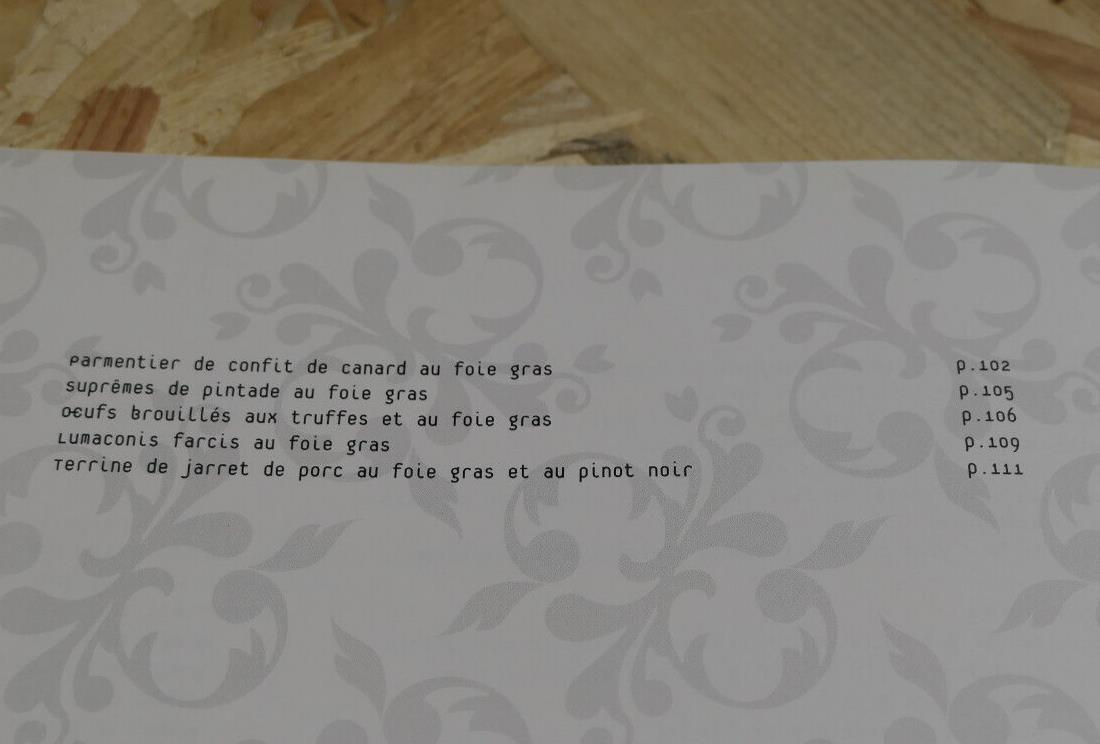 Parmentier de confit de canard au foie gras p.102
suprêmes de pintade au foie gras p.105
œufs brouillés aux truffes et au foie gras p.106
Lumaconis farcis au foie gras p.109
Terrine de jarret de porc au foie gras et au pinot noir p.111